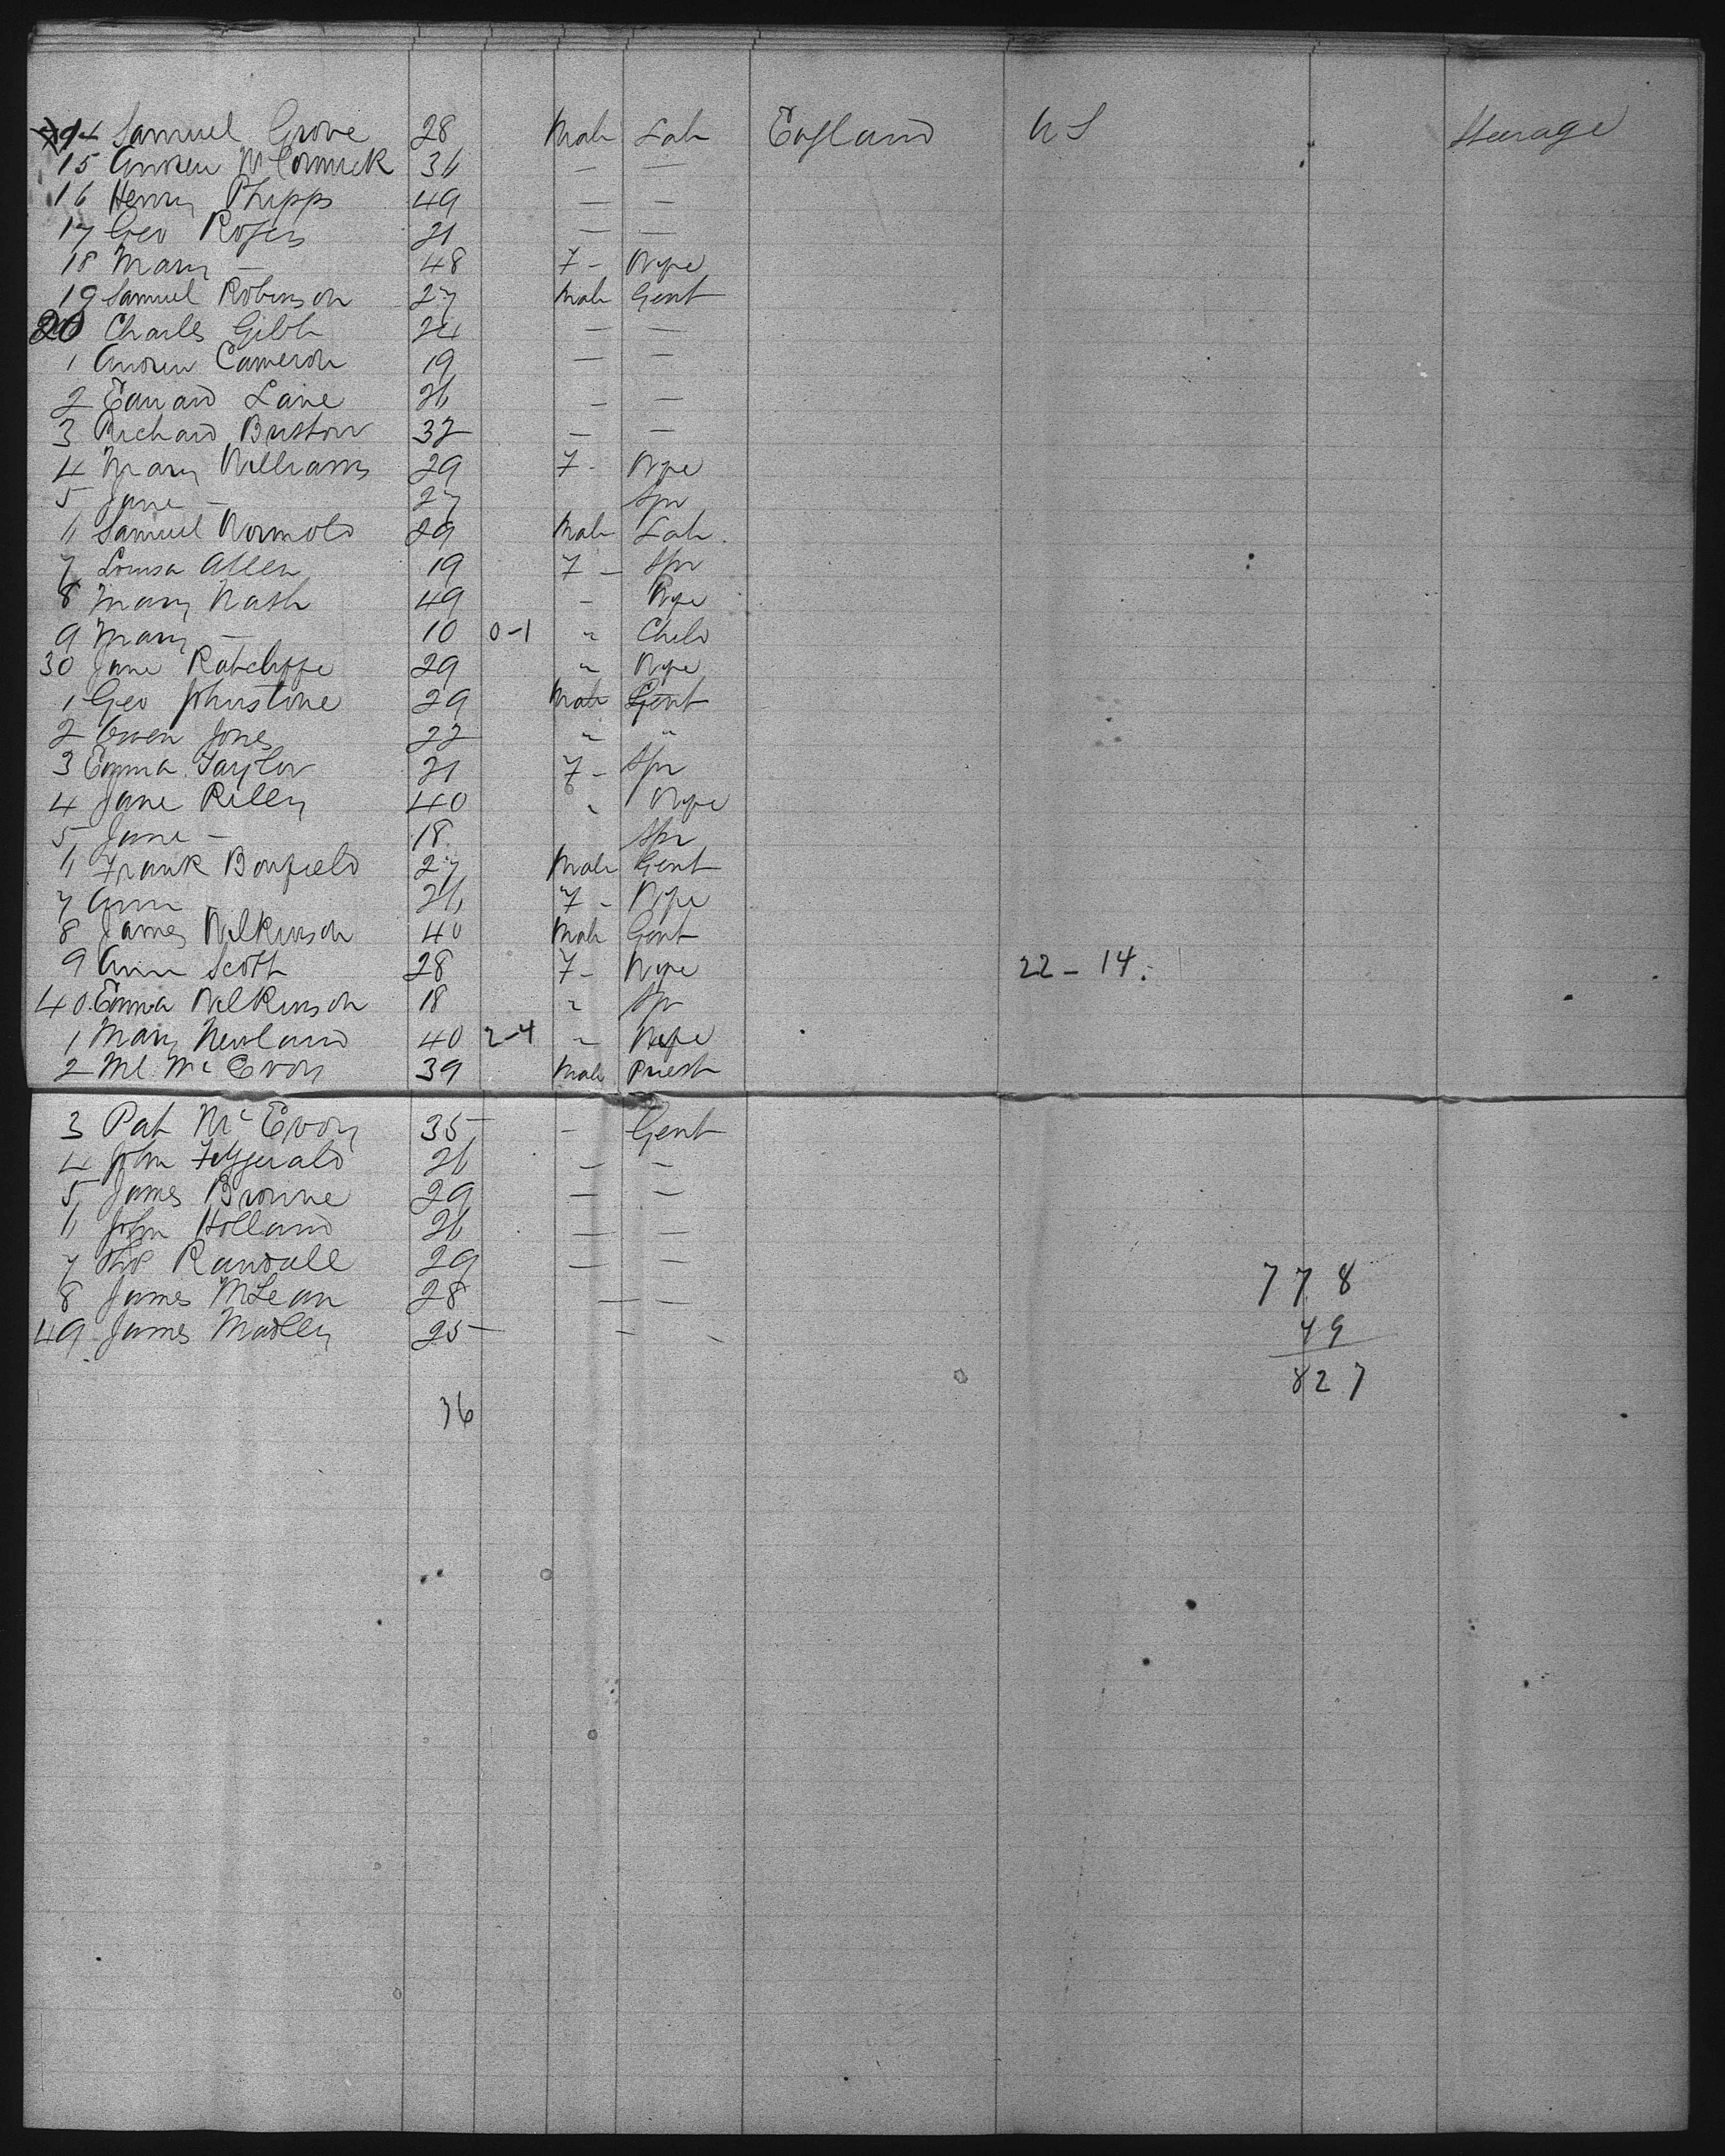 14 Samuel Grove 28 Male Lab England U S Steerage
15 Andrew McCormick 36 — —
16 Henry Phipps 49 — —
17 Geo Rogers 21 — —
18 Mary — 48 F - Wife
19 Samuel Robinson 27 Male Gent
20 Charles Gibb 24 — —
1 Andrew Cameron 19 — —
2 Edward Lane 26 — —
3 Richard Bristow 32 — —
4 Mary Williams 29 F - Wife
5 Jane — 27 Spr
6 Samuel Wormold 29 Male Lab
7 Louisa Allen 19 F - Spr
8 Mary Nash 49 - Wife
9 Mary — 10 0-1 " Child
30 Jane Ratcliffe 29 " Wife
1 Geo Johnstone 29 Male Gent
2 Owen Jones 22 " "
3 Emma Taylor 21 F - Spr
4 Jane Riley 40 " Wife
5 Jane — 18 Spr
6 Frank Bonfield 27 Male Gent
7 Ann 26 F - Wife
8 James Wilkinson 40 Male Gent
9 Ann Scott 28 F - Wife 22 - 14
40 Emma Wilkinson 18 " Spr
1 Mary Newland 40 2-4 " Wife
2 Ml McEvoy 39 Male Priest
3 Pat McEvoy 35 - Gent
4 John Fitzgerald 26 — —
5 James Browne 29 — —
6 John Holland 26 — —
7 Randall 29 — —
8 James McLean 28 — —
49 James Madley 25 - -
778
49
827
36